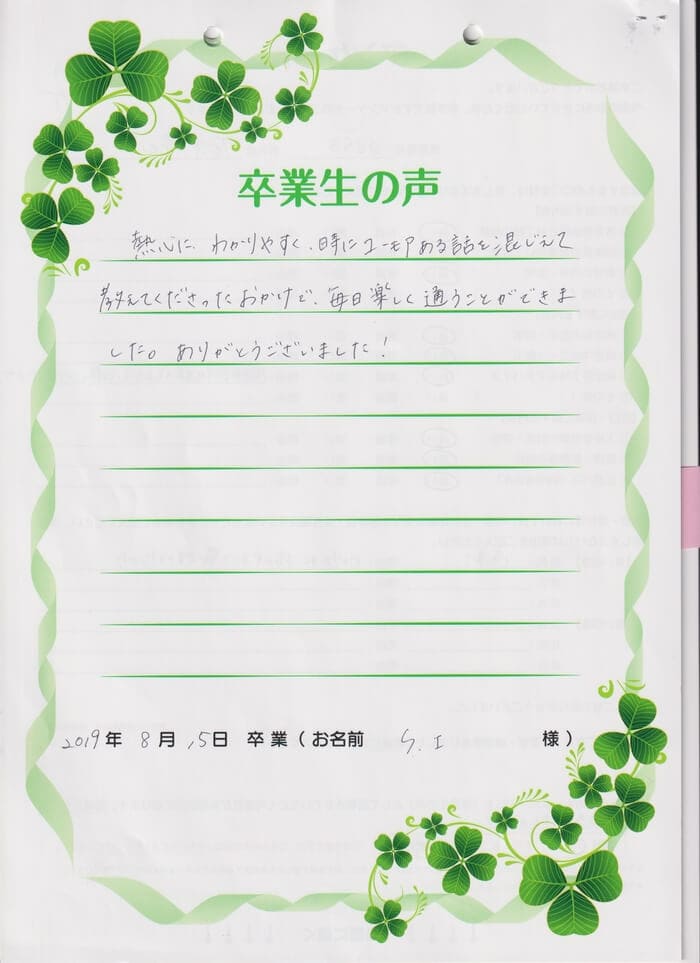 卒業生の声
熱心に、わかりやすく、時にユーモアある話を混じえて
教えてくださったおかげで、毎日楽しく通うことができま
した。ありがとうございました!
2019年 8月 15日 卒業(お名前 S.I 様)